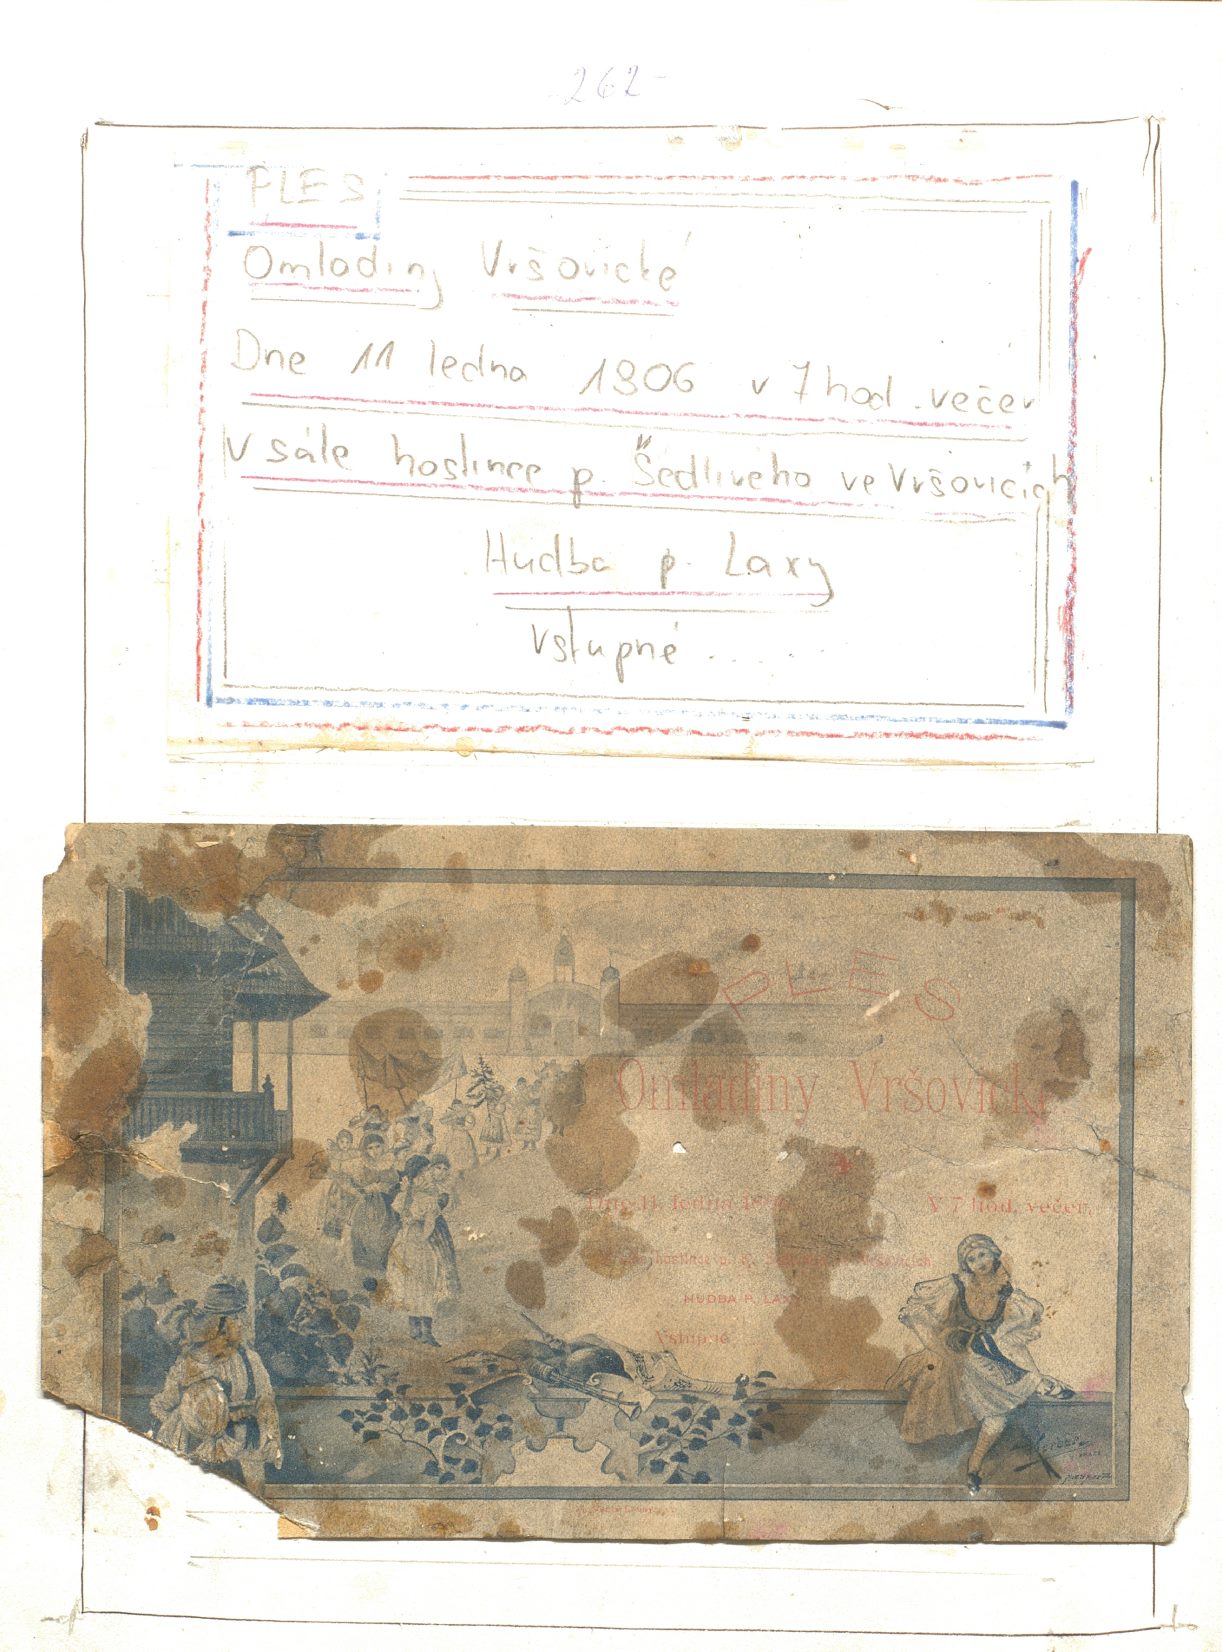 -262-
PLES
Omladiny Vršovické
Dne 11 ledna 1906 v 7 hod. večer
v sále hostince p. Šedlivého ve Vršovicích
Hudba p. Laxy
Vstupné . . . . .
PLES
Omladiny Vršovické
Dne 11. ledna
V 7 hod. večer.
hostince p. F.
HUDBA P. LAXY
Vstupné